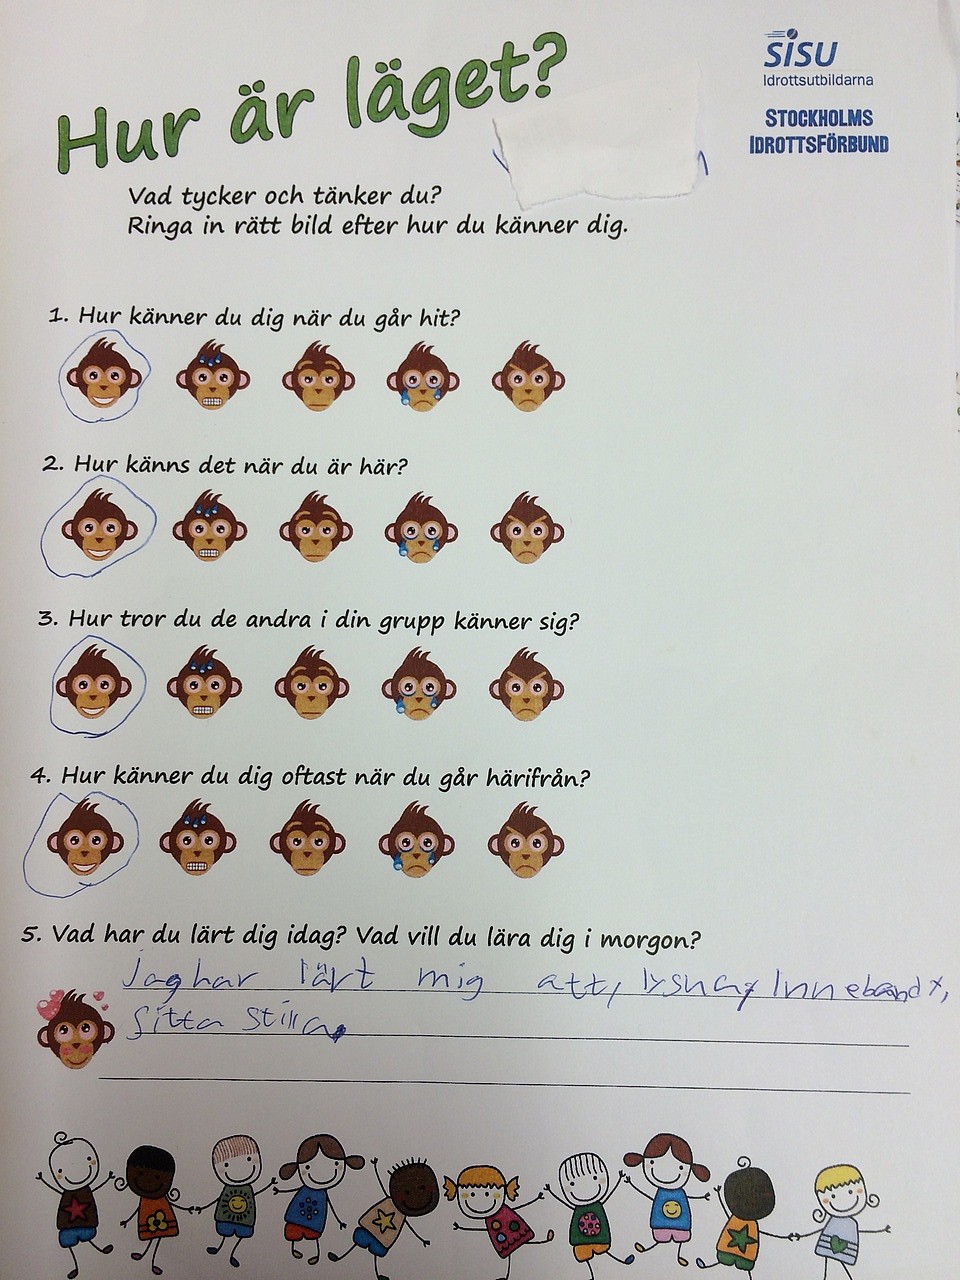 Hur är läget?
SISU
Idrottsutbildarna
STOCKHOLMS
IDROTTSFÖRBUND
Vad tycker och tänker du?
Ringa in rätt bild efter hur du känner dig.
1. Hur känner du dig när du går hit?
2. Hur känns det när du är här?
3. Hur tror du de andra i din grupp känner sig?
4. Hur känner du dig oftast när du går härifrån?
5. Vad har du lärt dig idag? Vad vill du lära dig i morgon?
Jag har lärt mig att, lysna, Innebandy,
sitta stilla,